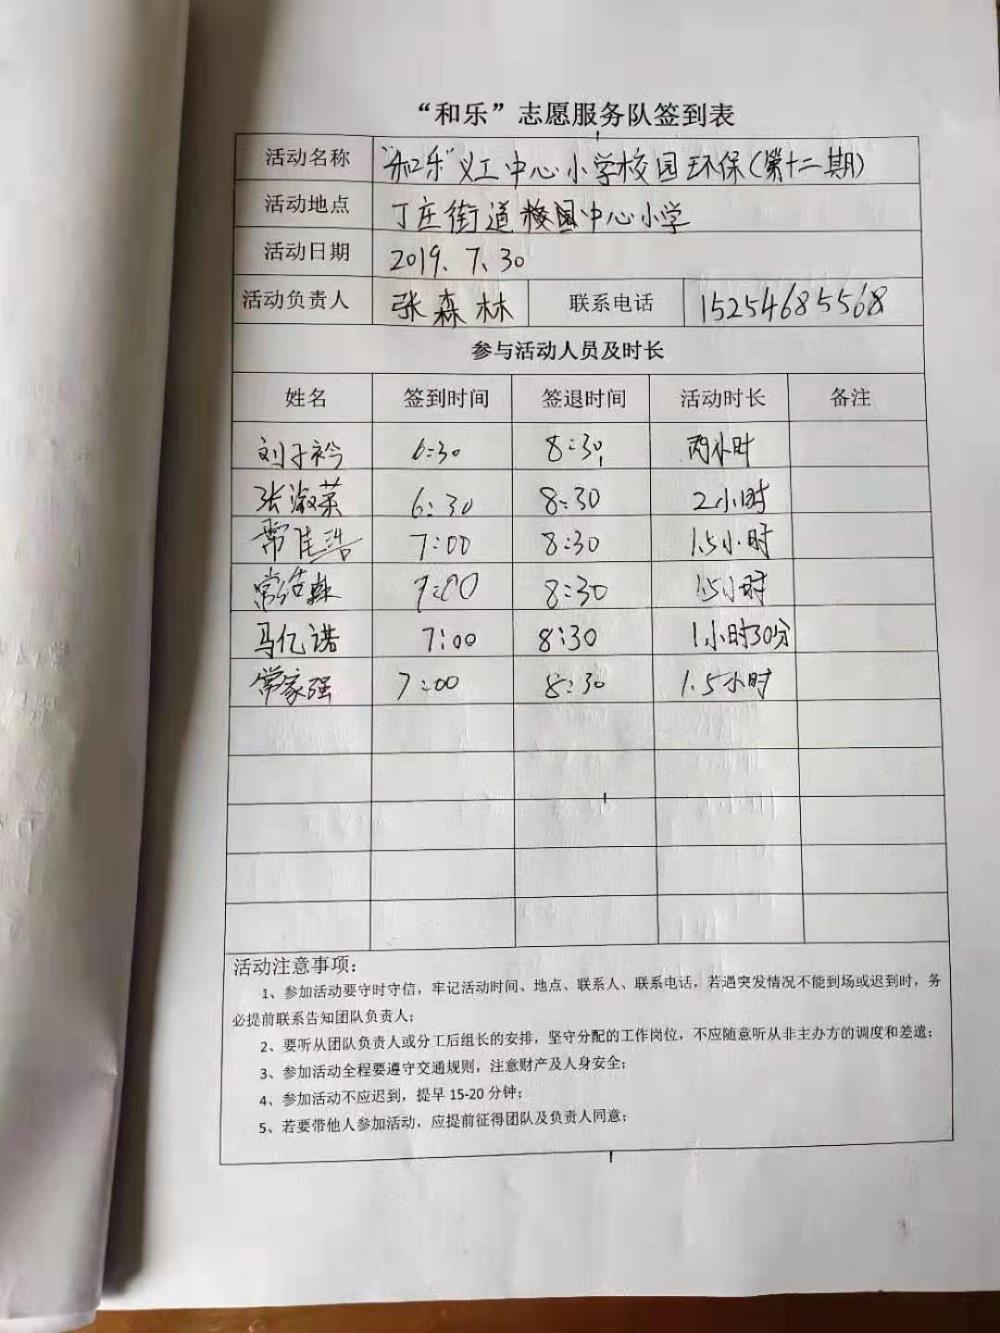 “和乐”志愿服务队签到表
活动名称 “和乐”义工中心小学校园环保(第十二期)
活动地点 丁庄街道中心小学
活动日期 2019.7.30
活动负责人 张森林 联系电话 15254685568
参与活动人员及时长
姓名 签到时间 签退时间 活动时长 备注
刘子衿 6:30 8:30 两小时
张淑英 6:30 8:30 2小时
常佳浩 7:00 8:30 1.5小时
常 7:00 8:30 1.5小时
马亿诺 7:00 8:30 1小时30分
常家强 7:00 8:30 1.5小时
活动注意事项：
1、参加活动要守时守信，牢记活动时间、地点、联系人、联系电话，若遇突发情况不能到场或迟到时，务
必提前联系告知团队负责人；
2、要听从团队负责人或分工后组长的安排，坚守分配的工作岗位，不应随意听从非主办方的调度和差遣；
3、参加活动全程要遵守交通规则，注意财产及人身安全；
4、参加活动不应迟到，提早 15-20 分钟；
5、若要带他人参加活动，应提前征得团队及负责人同意；